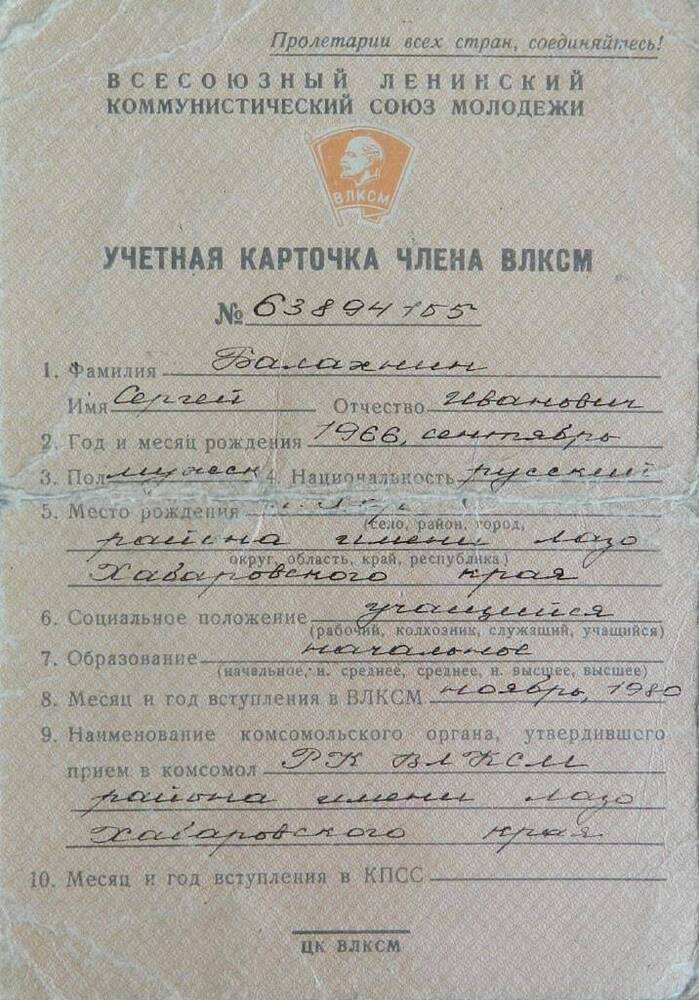 Пролетарии всех стран, соединяйтесь!
ВСЕСОЮЗНЫЙ ЛЕНИНСКИЙ
КОММУНИСТИЧЕСКИЙ СОЮЗ МОЛОДЕЖИ
ВЛКСМ
УЧЕТНАЯ КАРТОЧКА ЧЛЕНА ВЛКСМ
№ 63894155
1. Фамилия Балахнин
Имя Сергей Отчество Иванович
2. Год и месяц рождения 1966, сентябрь
3. Пол мужск 4. Национальность русский
5. Место рождения
(село, район, город,
района имени Лазо
округ, область, край, республика)
Хабаровского края
6. Социальное положение учащийся
(рабочий, колхозник, служащий, учащийся)
7. Образование начальное
(начальное, н. среднее, среднее, н. высшее, высшее)
8. Месяц и год вступления в ВЛКСМ ноябрь, 1980
9. Наименование комсомольского органа, утвердившего
прием в комсомол РК ВЛКСМ
района имени Лазо
Хабаровского края
10. Месяц и год вступления в КПСС
ЦК ВЛКСМ